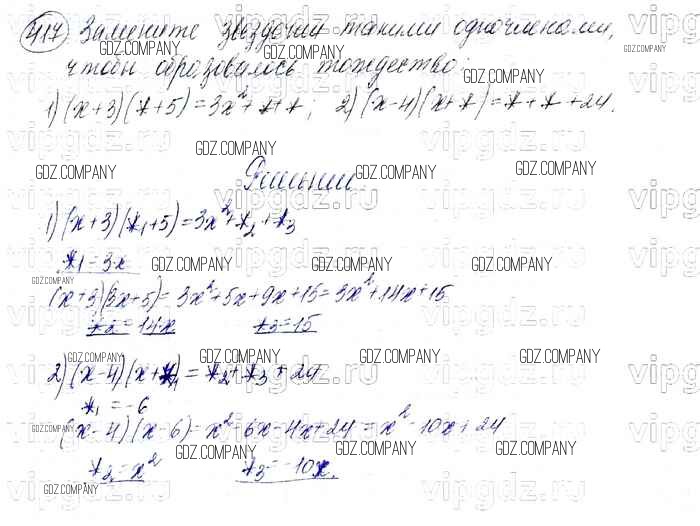 417 Замените звёздочки такими одночленами,
чтобы образовалось тождество:
1) (x+3)(*+5)=3x²+*+*; 2) (x-4)(x+*)=*+*+24.
Решение
1) (x+3)(*₁+5)=3x²+*₂+*₃
*₁=3x
(x+3)(3x+5)=3x²+5x+9x+15=3x²+14x+15
*₂=14x *₃=15
2) (x-4)(x+*₁)=*₂+*₃+24
*₁=-6
(x-4)(x-6)=x²-6x-4x+24=x²-10x+24
*₂=x² *₃=-10x.
GDZ.COMPANY
vipgdz.ru